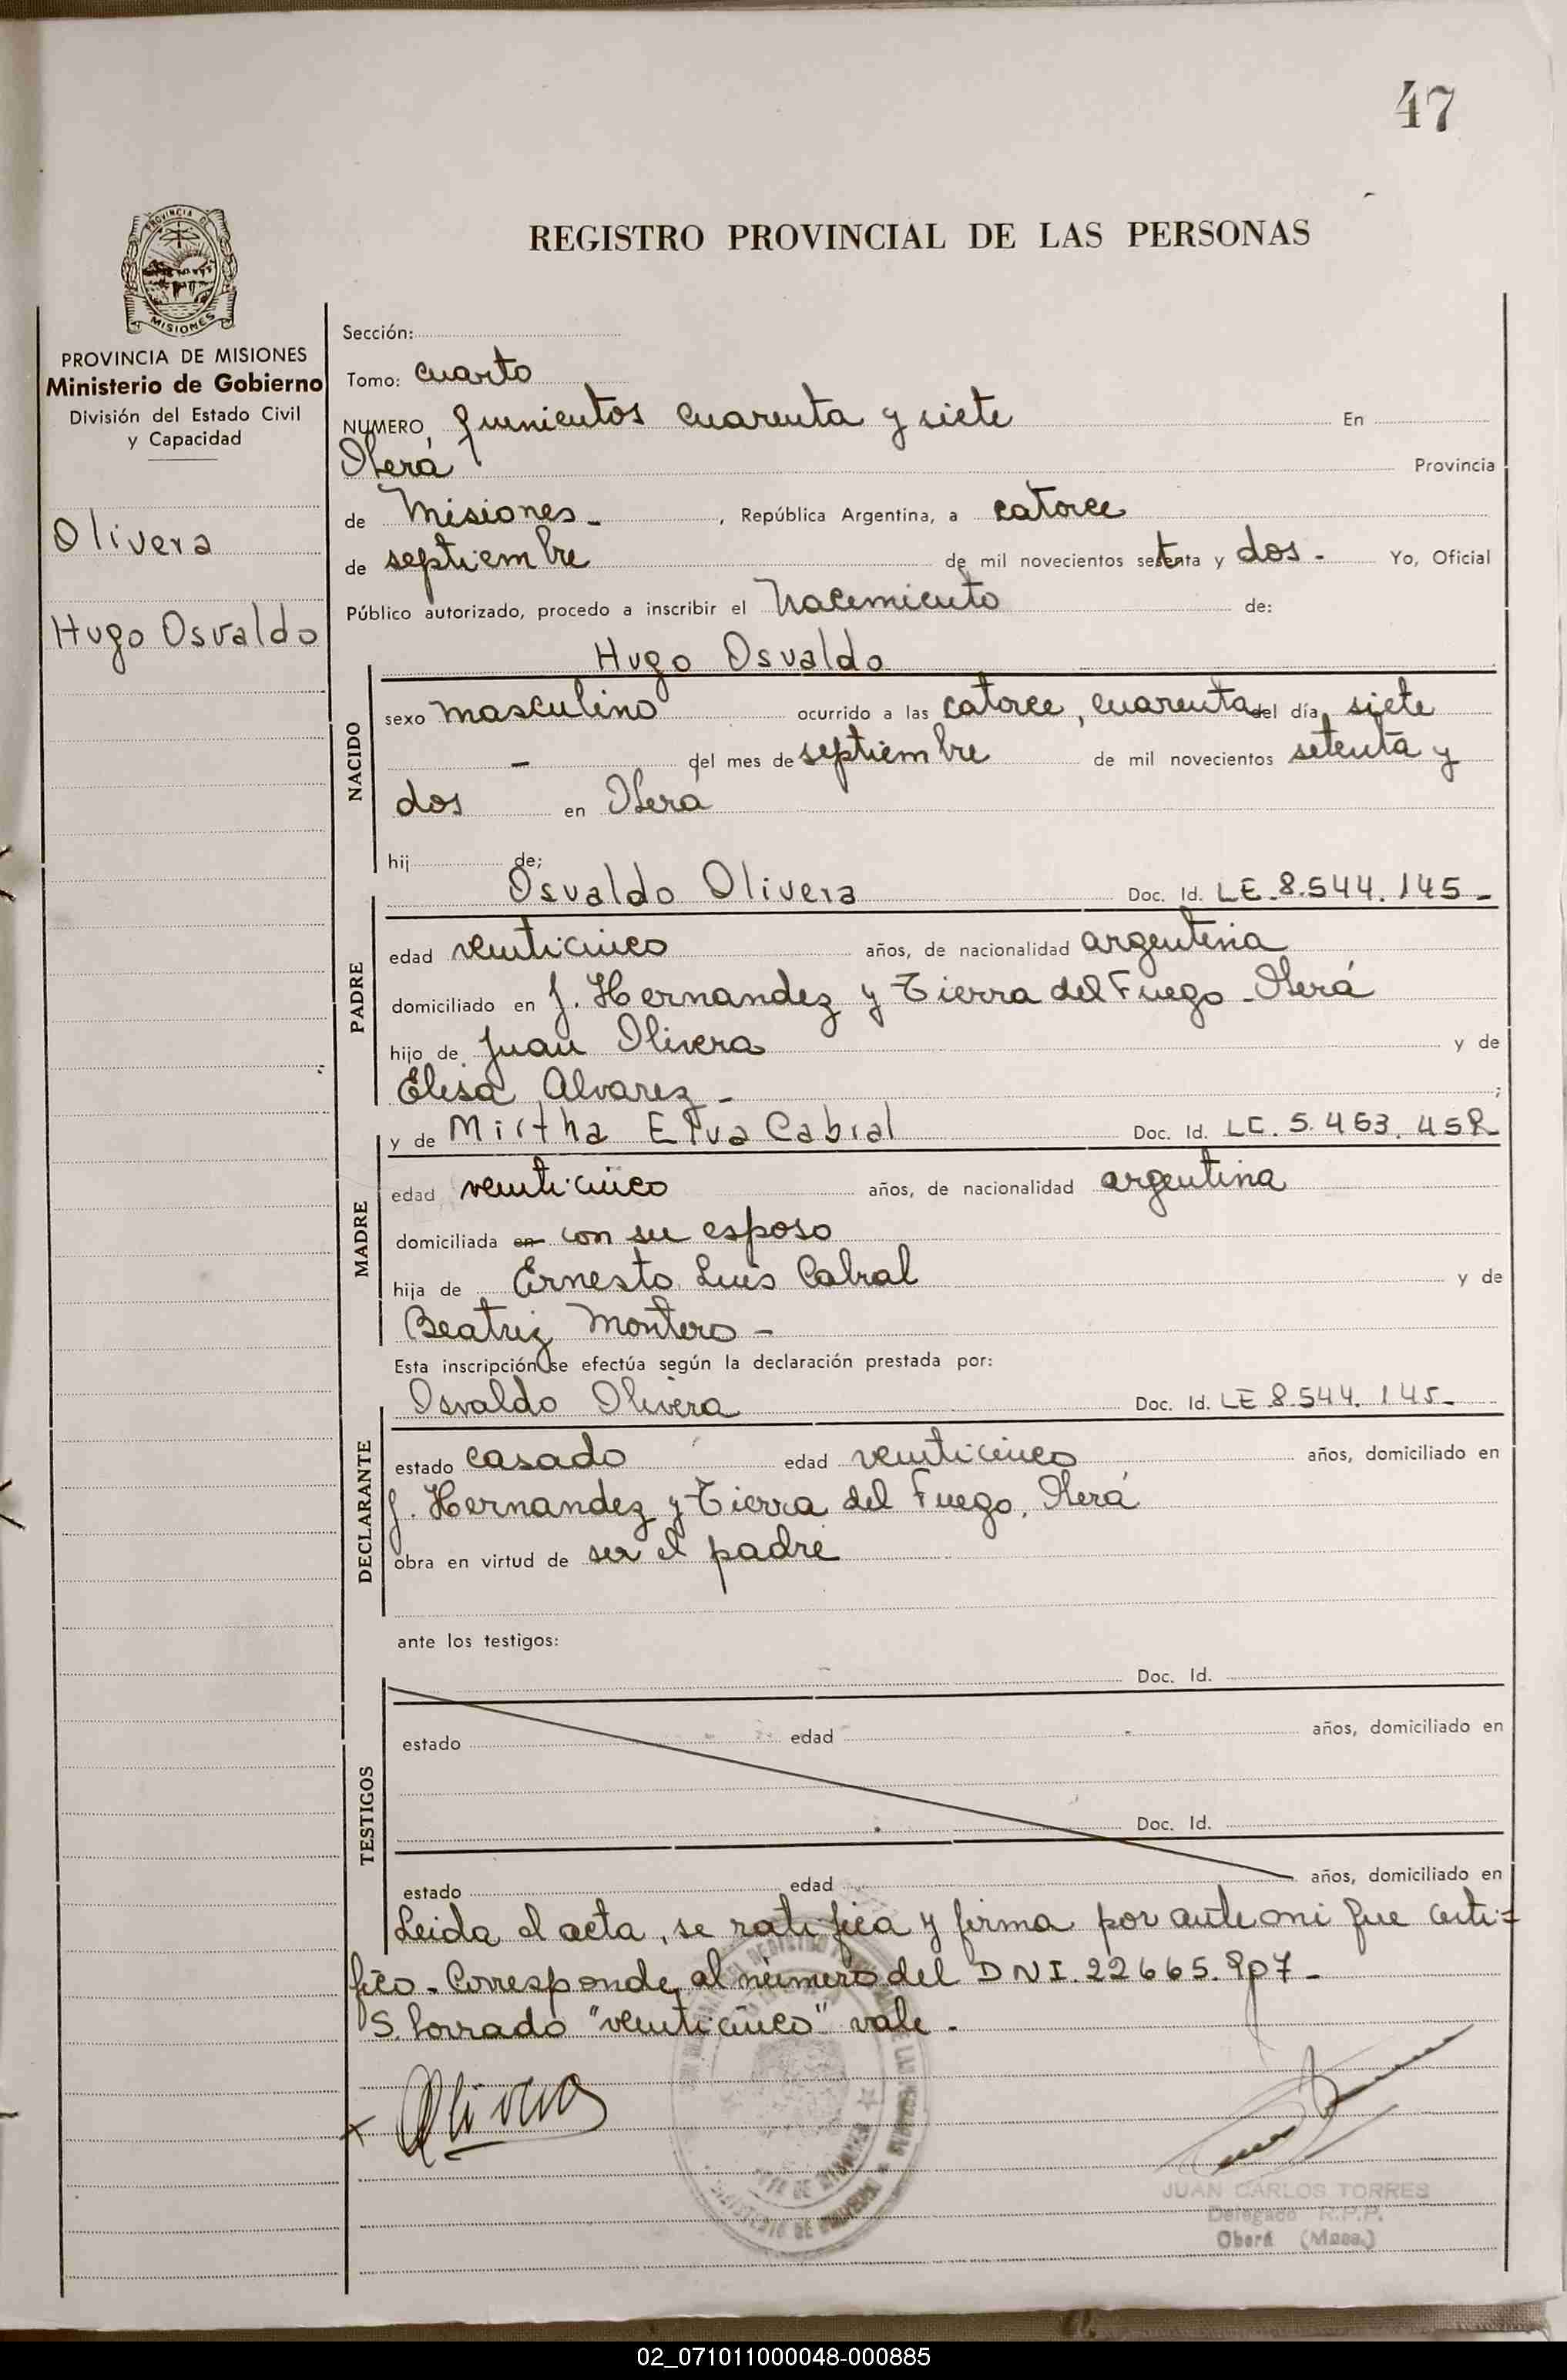 47
PROVINCIA DE
MISIONES
REGISTRO PROVINCIAL DE LAS PERSONAS
PROVINCIA DE MISIONES
Ministerio de Gobierno
División del Estado Civil
y Capacidad
Olivera
Hugo Osvaldo
Sección:
Tomo: cuarto
NUMERO, quinientos cuarenta y siete En
Oberá Provincia
de Misiones - , República Argentina, a catorce
de septiembre de mil novecientos setenta y dos - Yo, Oficial
Público autorizado, procedo a inscribir el Nacimiento de:
Hugo Osvaldo
NACIDO
sexo masculino ocurrido a las catorce, cuarenta del día siete
- del mes de septiembre de mil novecientos setenta y
dos en Oberá
hij de;
PADRE
Osvaldo Olivera Doc. Id. LE. 8.544.145-
edad veinticinco años, de nacionalidad argentina
domiciliado en J. Hernandez y Tierra del Fuego - Oberá
hijo de Juan Olivera y de
Elisa Alvarez - ;
MADRE
y de Mirtha Elva Cabral Doc. Id. LC. 5.463.
edad veinticinco años, de nacionalidad argentina
domiciliada en con su esposo
hija de Ernesto Luis Cabral y de
Beatriz Montero -
Esta inscripción se efectúa según la declaración prestada por:
DECLARANTE
Osvaldo Olivera Doc. Id. LE 8.544.145-
estado casado edad veinticinco años, domiciliado en
J. Hernandez y Tierra del Fuego, Oberá
obra en virtud de ser el padre
ante los testigos:
TESTIGOS
Doc. Id.
estado edad años, domiciliado en
Doc. Id.
estado edad años, domiciliado en
Leida el acta, se ratifica y firma por ante mi que certi=
fico - Corresponde al número del DNI. 22665.907 -
S. borrado "veinticinco" vale -
Olivera
JUAN CARLOS TORRES
Delegado R.P.P.
Oberá (Mnes.)
02_071011000048-000885